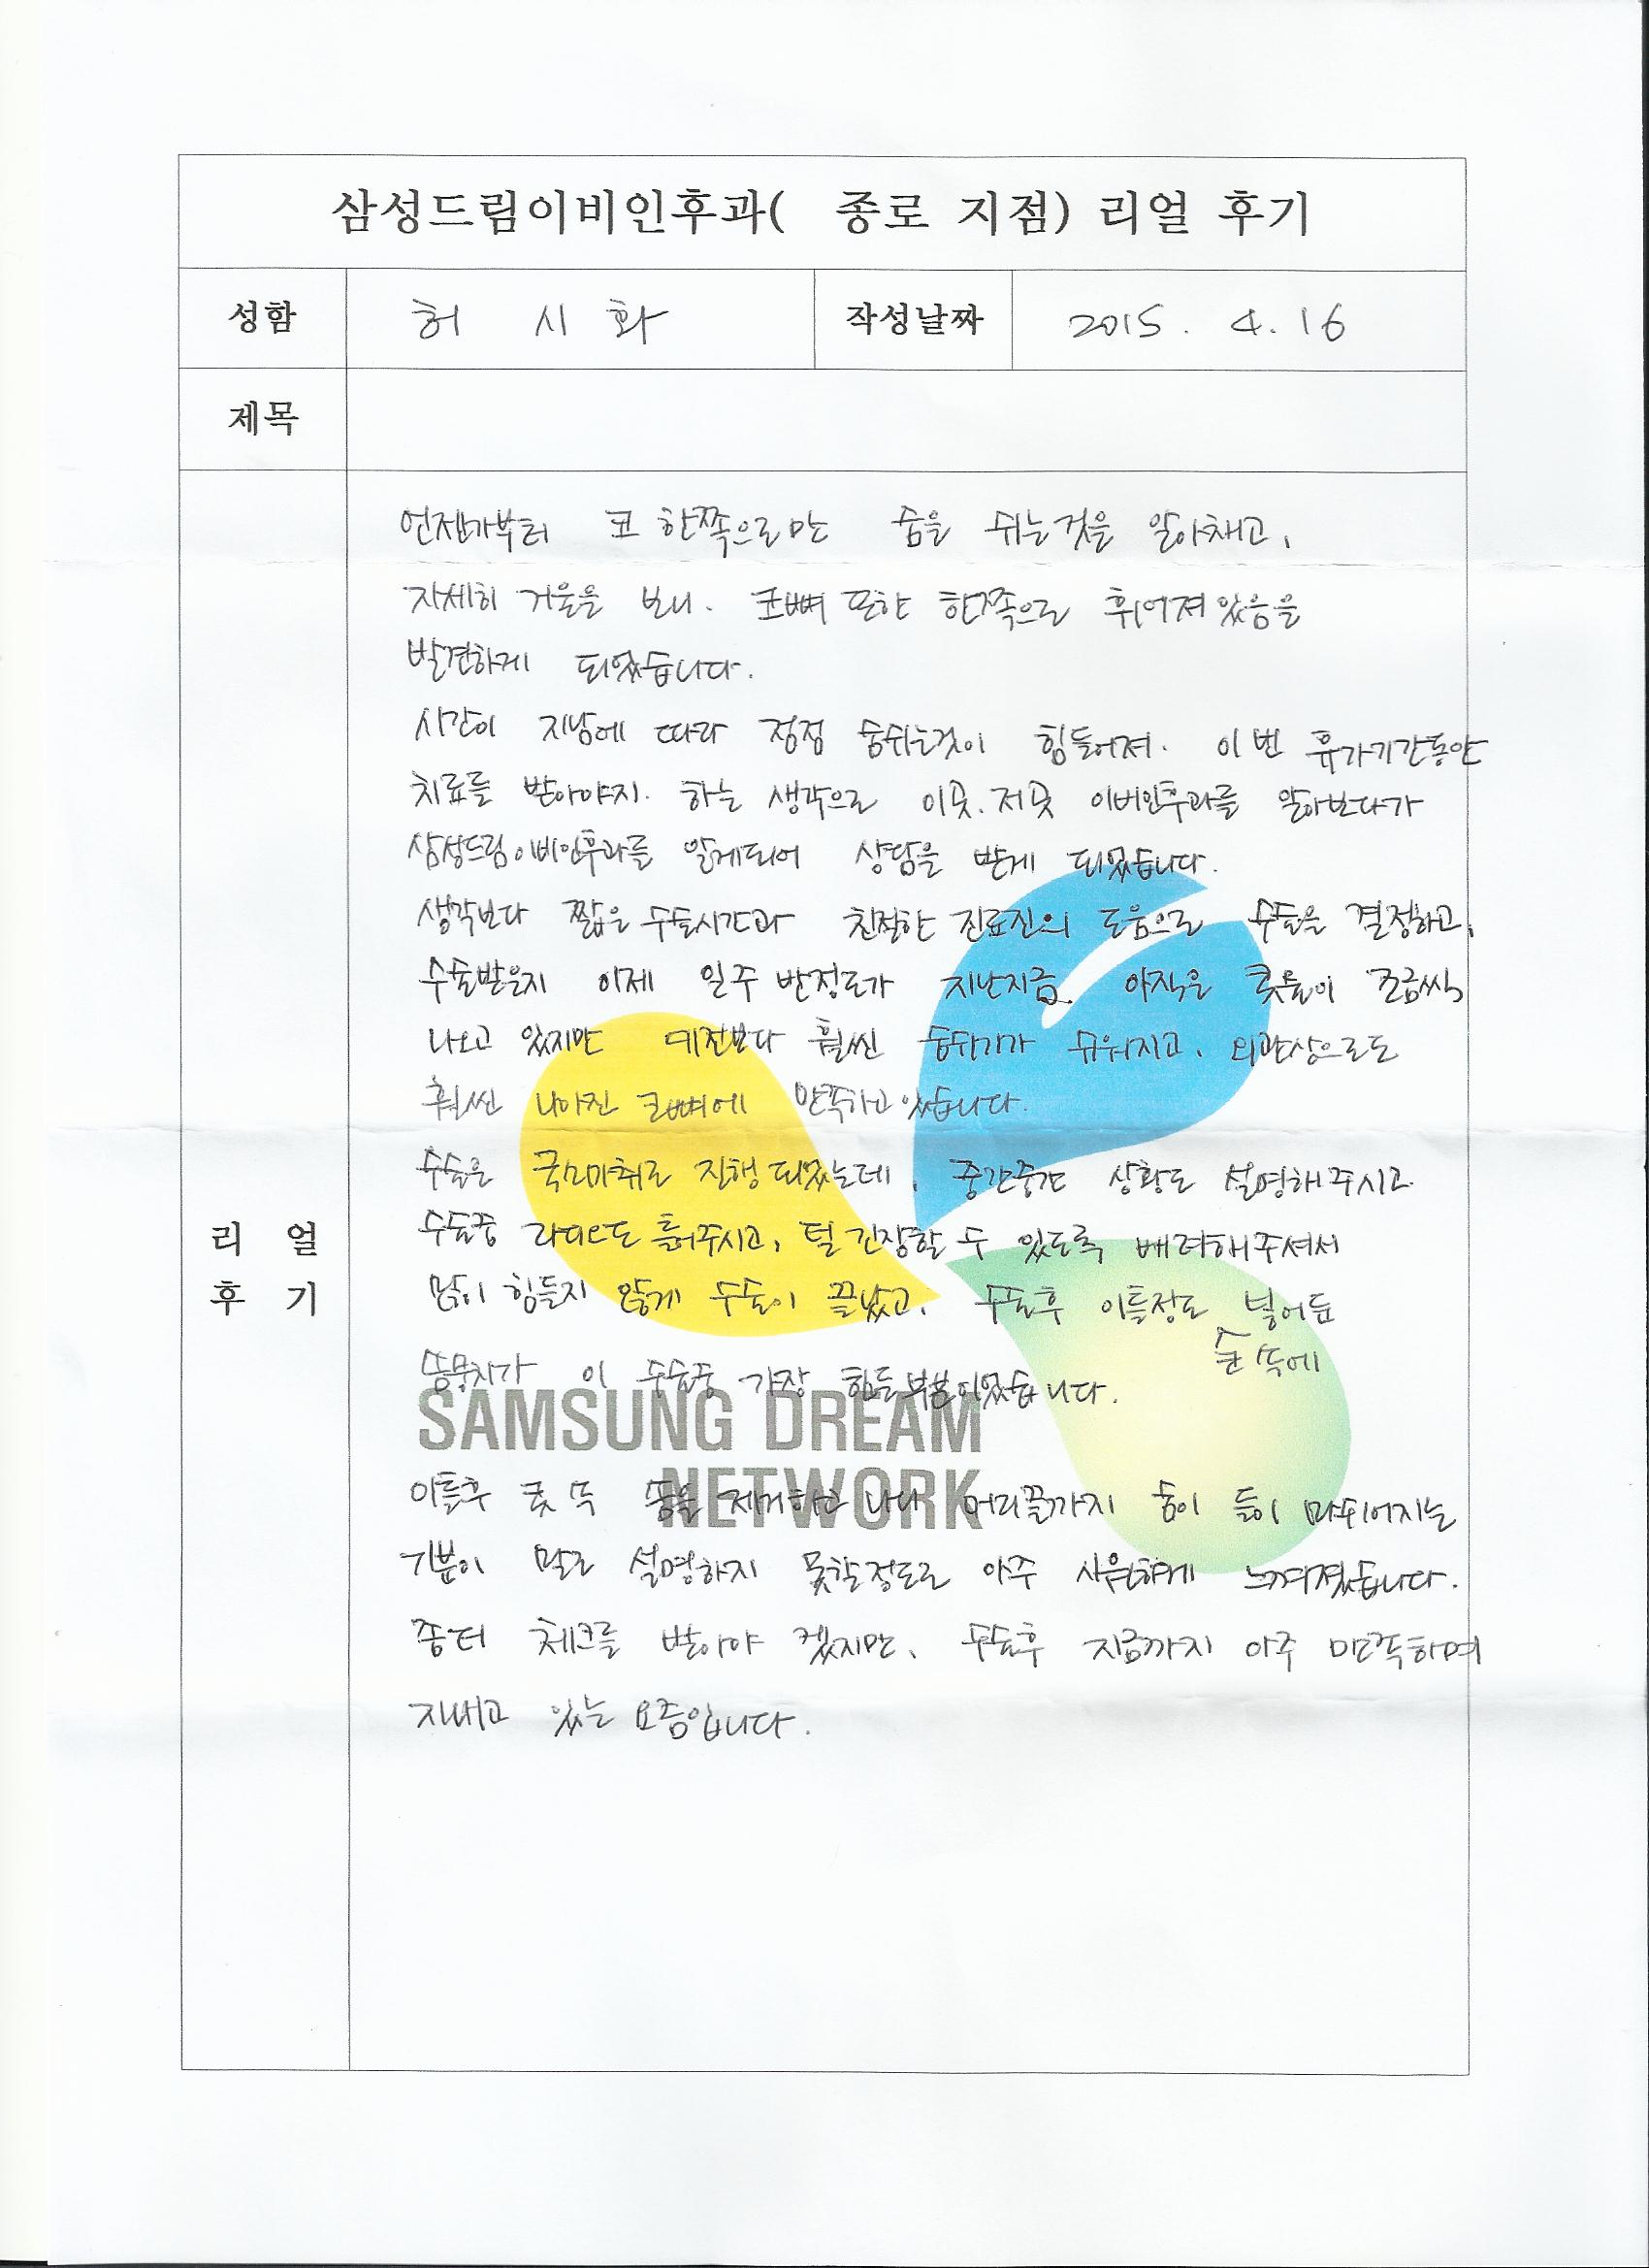 삼성드림이비인후과( 종로 지점) 리얼 후기
성함 허 시 화 작성날짜 2015. 4. 16
제목
언젠가부터 코 한쪽으로만 숨을 쉬는것을 알아채고,
자세히 거울을 보니. 코뼈 또한 한쪽으로 휘어져있음을
발견하게 되었습니다.
시간이 지남에 따라 점점 숨쉬는것이 힘들어져. 이번 휴가기간동안
치료를 받아야지. 하는 생각으로 이곳.저곳 이비인후과를 알아보다가
삼성드림이비인후과를 알게되어 상담을 받게 되었습니다.
생각보다 짧은 수술시간과 친절한 진료진의 도움으로 수술을 결정하고,
수술받은지 이제 일주 반정도가 지난지금. 아직은 콧물이 조금씩
나오고 있지만 예전보다 훨씬 숨쉬기가 쉬워지고, 외관상으로도
훨씬 나아진 코뼈에 만족하고있습니다.
수술은 국소마취로 진행되었는데, 중간중간 상황도 설명해주시고
수술중 라디오도 틀어주시고, 덜 긴장할 수 있도록 배려해주셔서
많이 힘들지 않게 수술이 끝났고, 수술후 이틀정도 넣어둔
코 속에
솜뭉치가 이 수술중 가장 힘든부분이었습니다.
SAMSUNG DREAM
NETWORK
이틀후 콧 속 솜을 제거하고 나니 머리끝까지 숨이 들이 마쉬어지는
기분이 말로 설명하지 못할정도로 아주 시원하게 느껴졌습니다.
좀더 체크를 받아야 겠지만, 수술후 지금까지 아주 만족하며
지내고 있는 요즘입니다.
리 얼
후 기